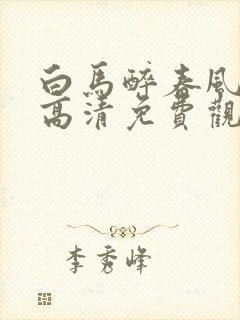 白馬醉春風
高清免費觀
李秀峰